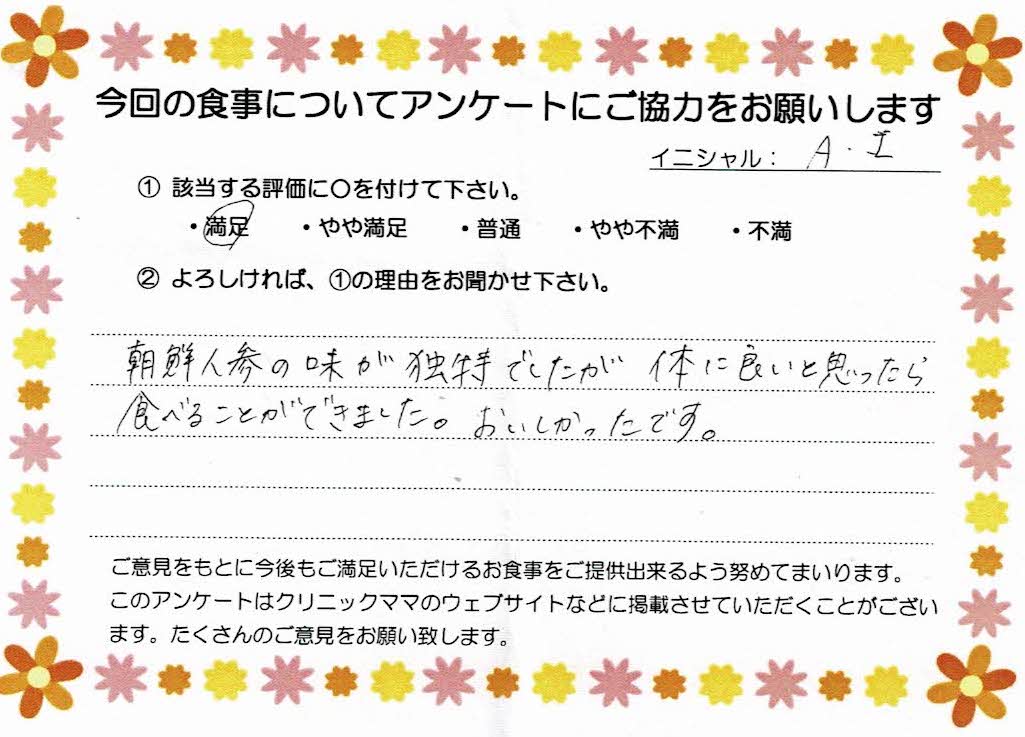 今回の食事についてアンケートにご協力をお願いします
イニシャル: A・I
① 該当する評価に○を付けて下さい。
・満足 ・やや満足 ・普通 ・やや不満 ・不満
② よろしければ、①の理由をお聞かせ下さい。
朝鮮人参の味が独特でしたが 体に良いと思ったら
食べることができました。おいしかったです。
ご意見をもとに今後もご満足いただけるお食事をご提供出来るよう努めてまいります。
このアンケートはクリニックママのウェブサイトなどに掲載させていただくことがござい
ます。たくさんのご意見をお願い致します。